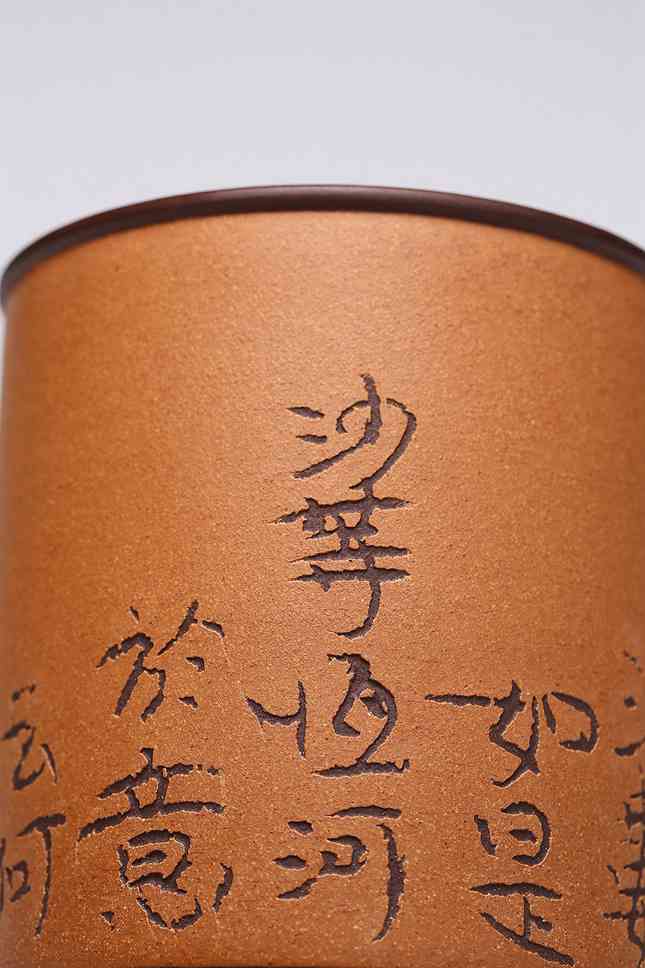 如是
沙等恒河
於意
云何